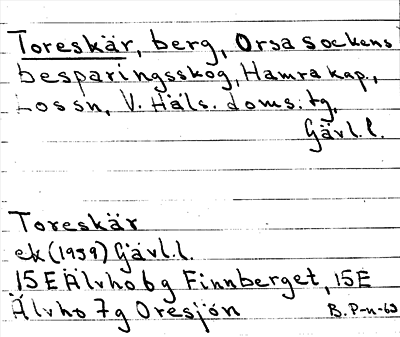 Toreskär, berg, Orsa sockens
besparingsskog, Hamra kap.,
Lossn, V. Häls. doms. tg,
Gävl.l.
Toreskär
ek (1959) Gävl.l.
15E Älvho 6g Finnberget, 15E
Älvho 7g Oresjön
B. P-n-63